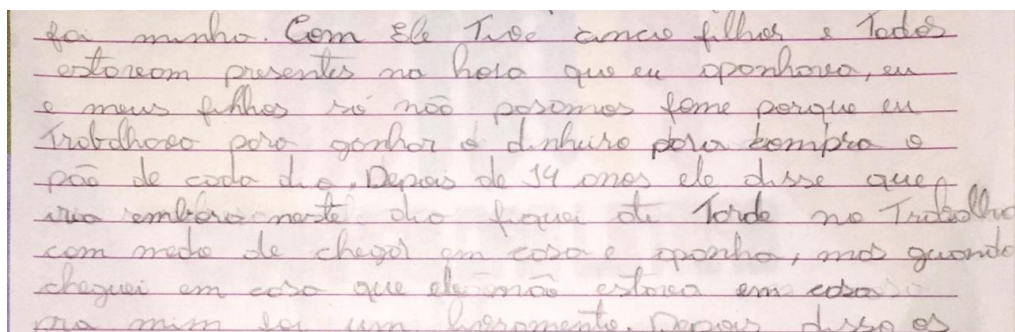 foi minho. Com ele Tive cinco filhos e Todos
estavam presentes na hora que eu aponhava, eu
e meus filhos só não pasamos fome porque eu
Trabalhava para ganhar o dinheiro para compra o
pão de cada dia. Depois de 14 anos ele disse que
iria embora neste dia fiquei até Tarde no Trabalho
com medo de chegar em casa e aponha, mas quando
cheguei em casa que ele não estava em casa
pra mim foi um livramento. Depois disso os